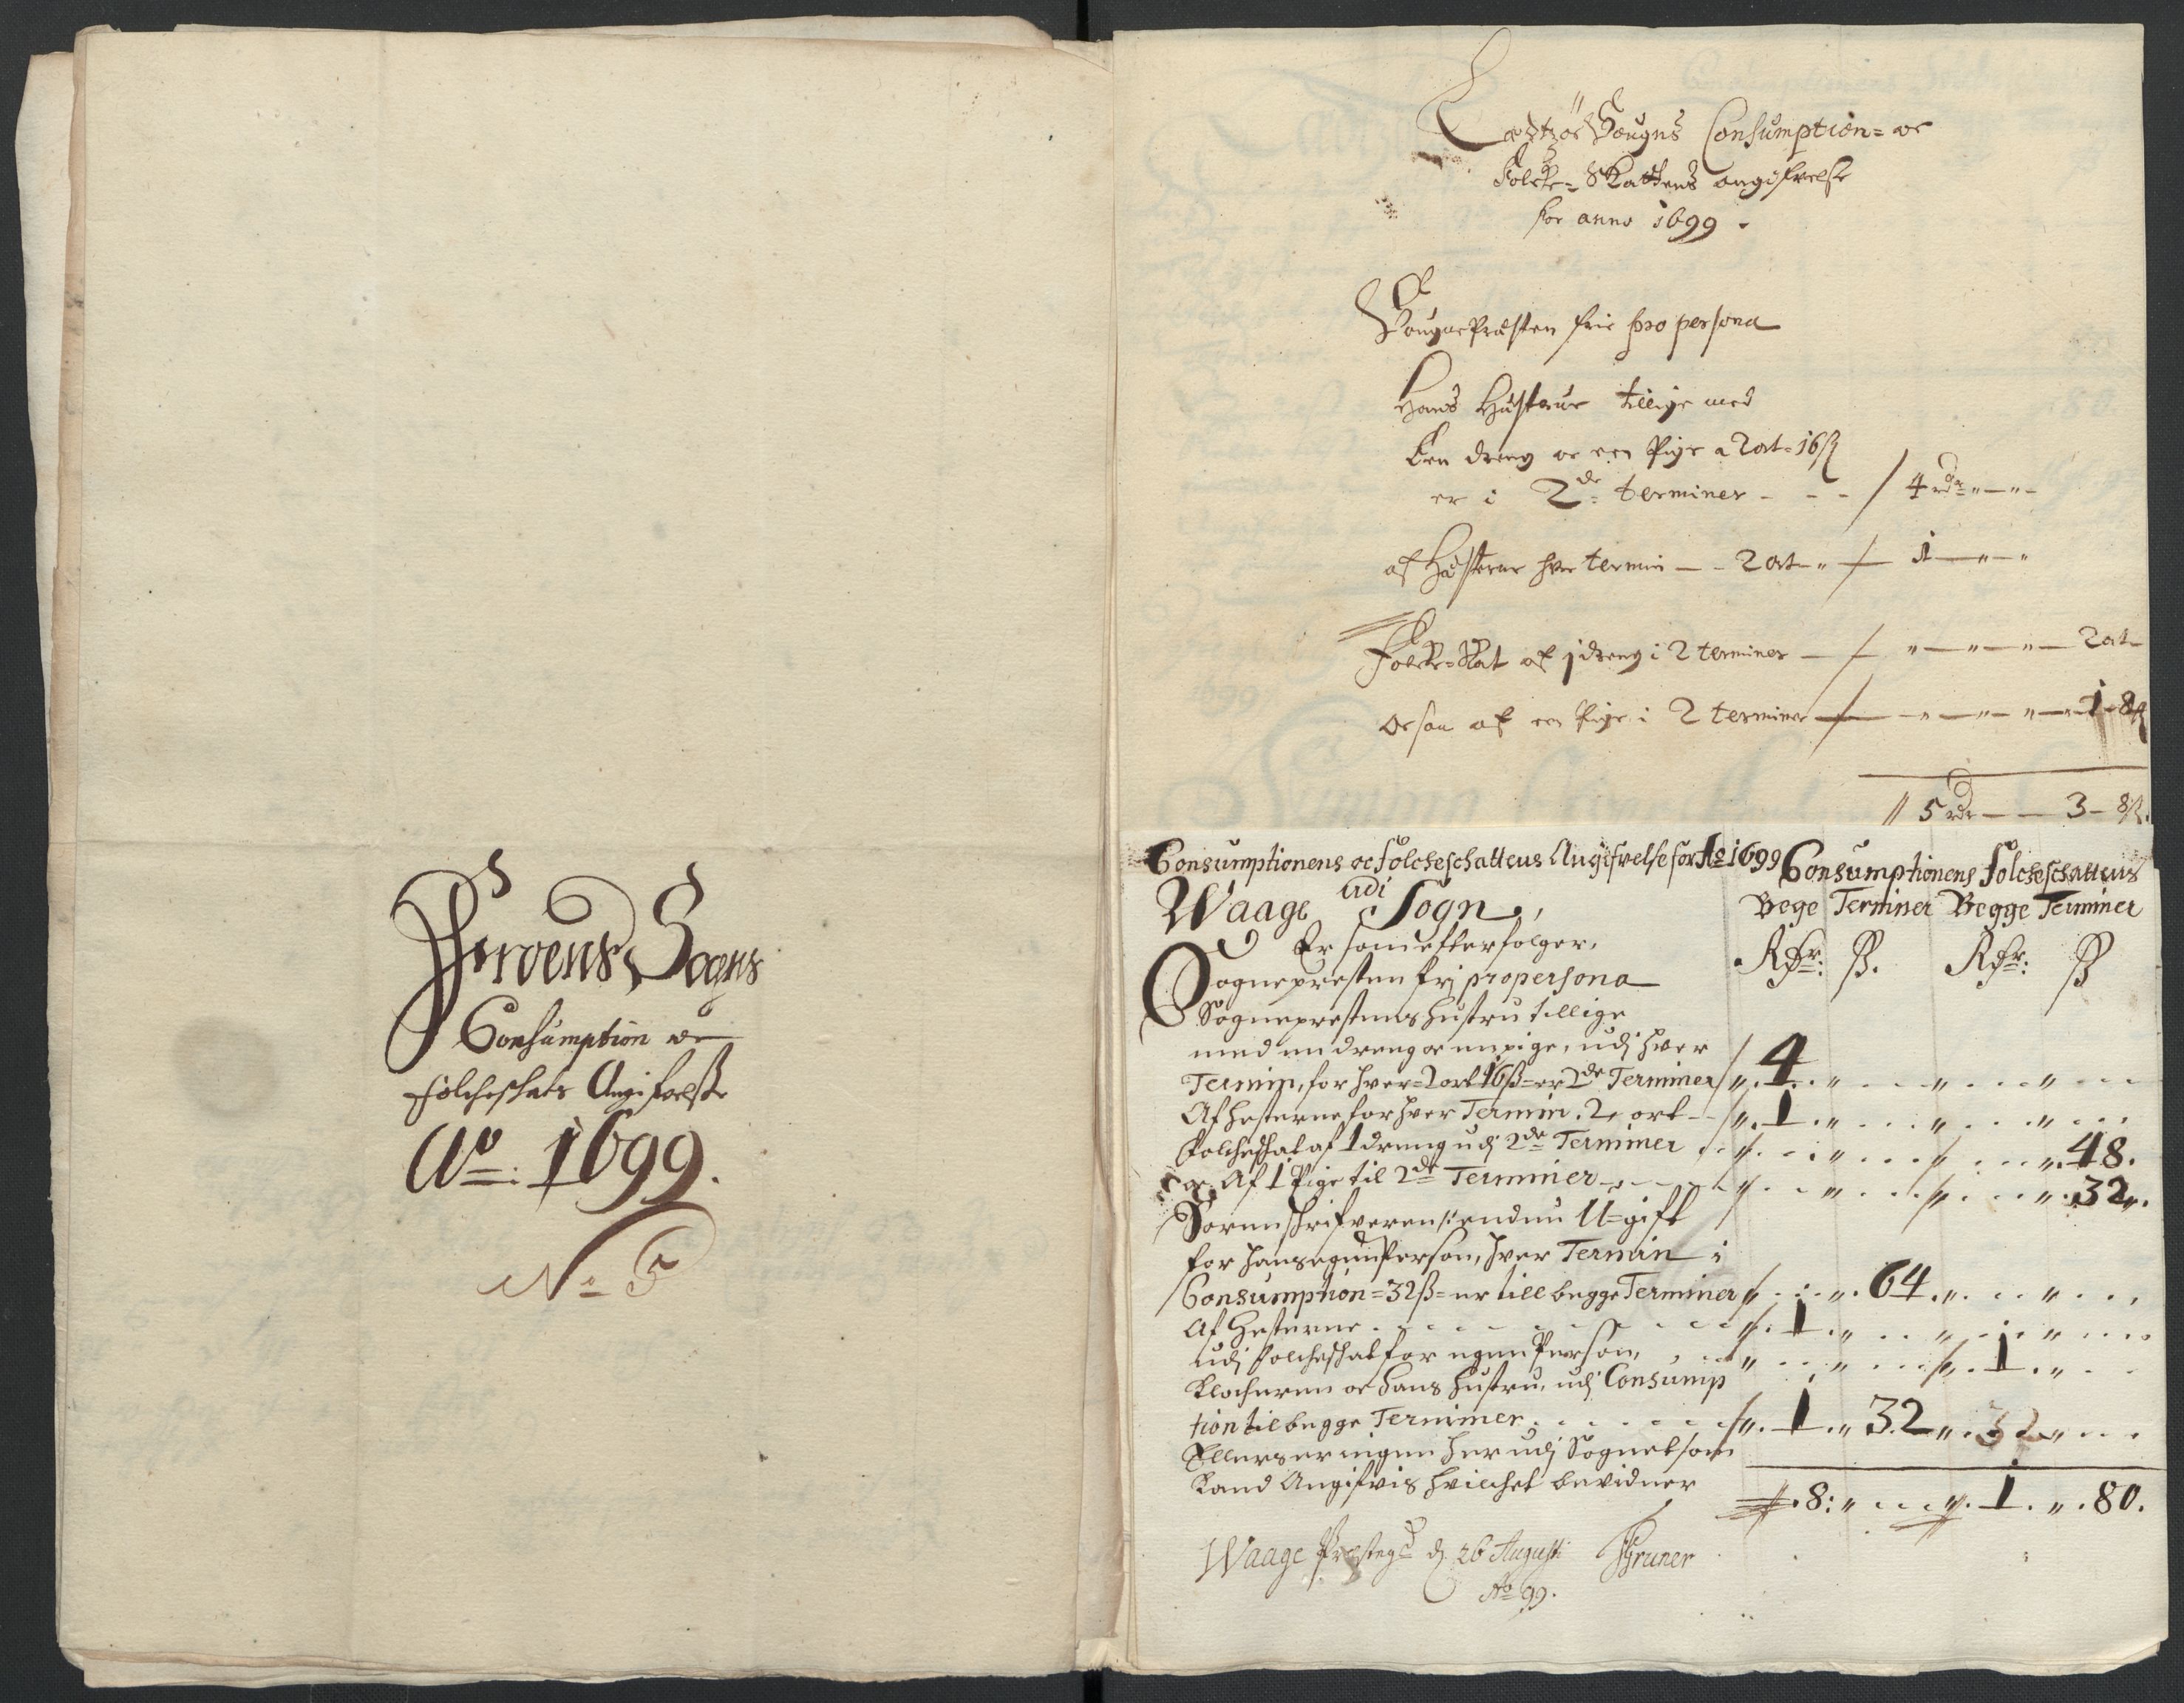 Sogns
Consumption oc
folcheskats Angifvelse
Ao: 1699.
No 5
Sougns Consumption= oc
Folcke=Skattens angifvelse
for anno 1699.
Sougnepræsten frie pro persona
Hans Hustrue tillige med
Een dreng oc een Pige a 2 ort=16 ß
er i 2de terminer - - - / 4 rdr " — " -
af Hæsterne hver termin — - 2 ort - " / 1 — " - "
Folcke=Skat af 1 dreng i 2 terminer — / " — " — " — 2 ort
oc saa af en Pige i 2 terminer / - " — " - " — 1 - 8 ß
// 5 rdr — — 3 - 8 ß.
Consumptionens oc folcheschattens Angifvelse for Ao 1699
udi
Waage Sogn,
Consumptionens folcheschattens
Bege Terminer Begge Terminer
Er som efterfølger,
Rdr: ß. Rdr: ß
Sognepresten frj pro persona
Sogneprestens hustru tillige
med en dreng oc en pige, udj hver
Termin, for hver=2 ort 16 ß=er 2de Terminer / ". 4. " . . . " . . . " . . .
Af hesterne for hver Termin. 2 ort -- / ". 1. " . . . " . . . " . . .
Folcheschat af 1 dreng udj 2de Terminer . . ". . . " . . . " . . . ". 48.
oc Af 1 Pige til 2de Terminer . . . ". . . " . . . ". . . ". 32".
Sorenskrifveren /: endnu U=gift
for hans egen Person, hver Termin i
Consumption=32 ß=er till begge Terminer " . . . ". 64. ". . . " . . .
Af Hesterne . . . . . . . ". 1. " . . . " . . . " . . .
udj folcheschat for egen Person, . . " . . . " . . . ". 1. " . .
Klocheren oc hans hustru, udj Consump
tion til begge Terminer . . . . . ". 1. " 32 ". 32 " . . .
Ellers er ingen her udj Sognet som
Kand Angifvis hvilchet bevidner
. 8: " . . . ". 1. ". 80.
Waage Præstegd d 26 Augusti Gruner
Ao 99.